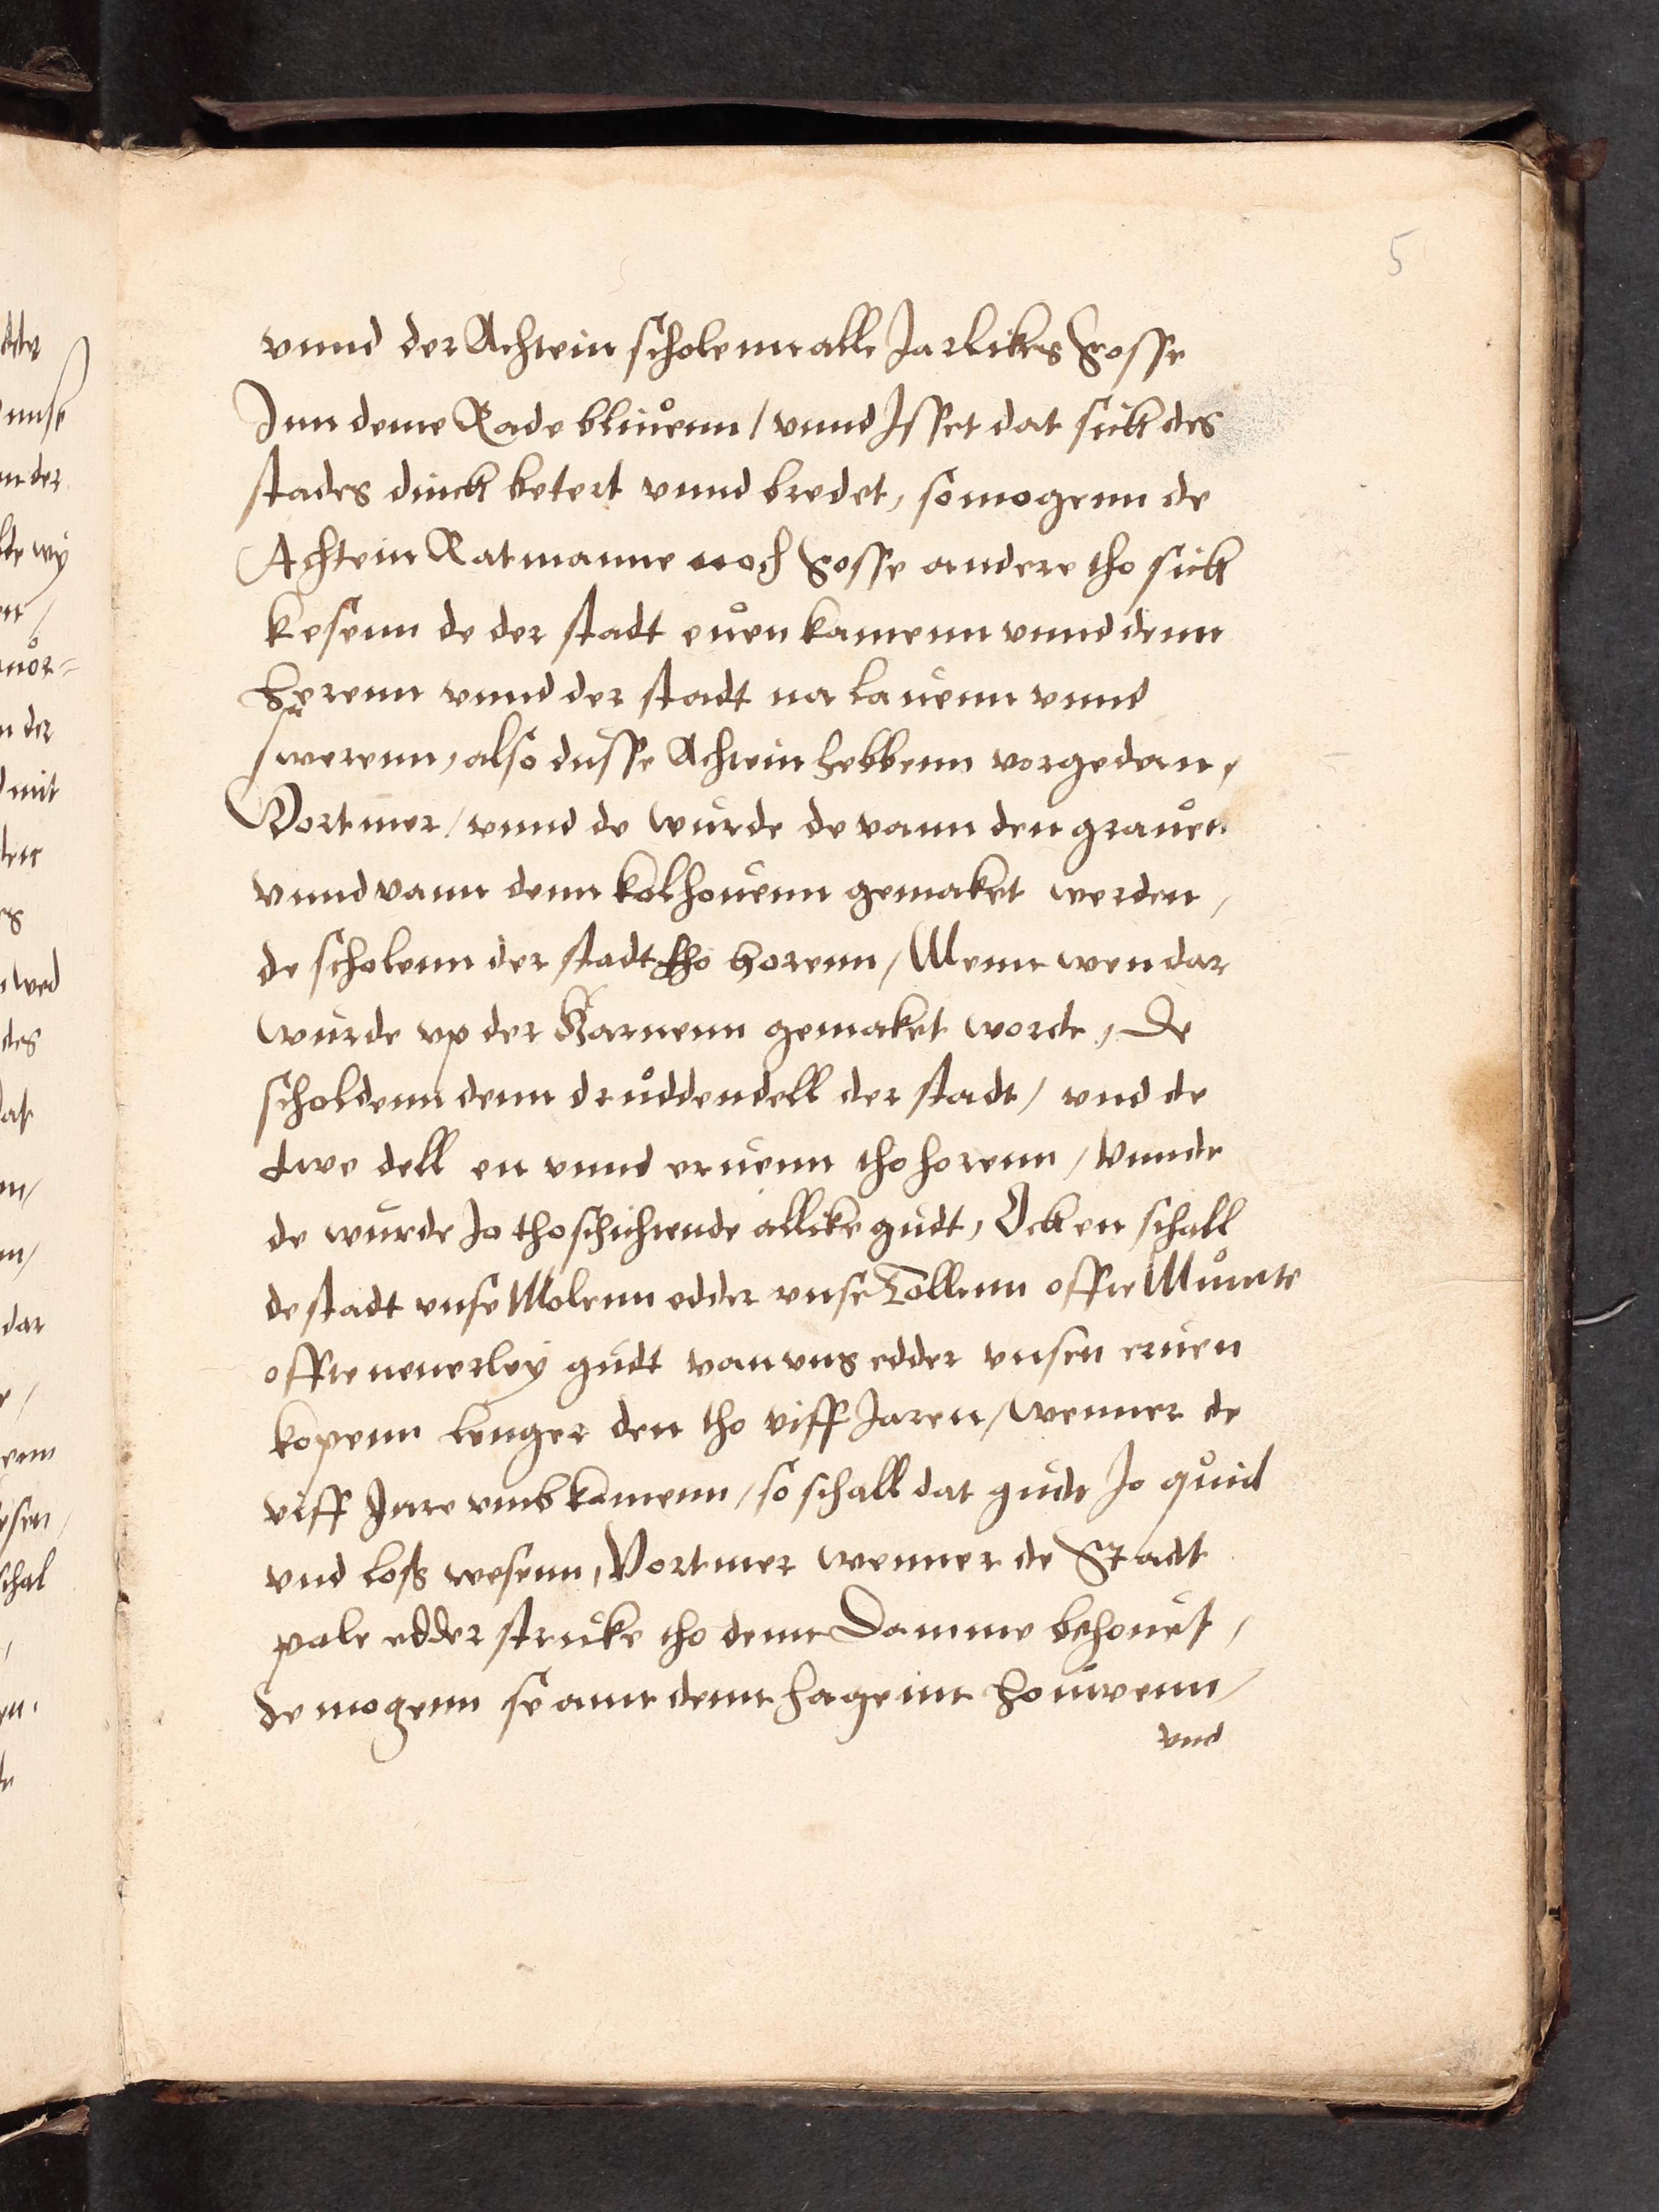 5
vnnd der Achtein scholenn alle Jarlikes Sosse
Inn deme Rade bliuenn / vnnd Isset dat sick des
stades dinck betert vnnd bredet, so mogenn de
Achtein Ratmanne noch Sosse andere tho sick
kesenn de der stadt euen kamenn vnnd denn
herenn vnnd der stadt na lauenn vnnd
swerenn, also dusse Achtein hebbenn vorgedan,
Vortmer / vnnd de wurde de vann den grauen
vnnd vann denn kolhouenn gemaket werden,
de scholenn der stadt tho horenn / Wenn wen dar
wurde vp der Karnenn gemaket worde, De
scholdenn denn druddendell der stadt / vnd de
twe dell en vnnd eruenn tho horenn / Vnnde
de wurde Jo tho schichtende allike gudt, Ock en schall
de stadt vnse Molenn edder vnse Tollenn offte Munte
offte nenerley gudt van vns edder vnsen eruen
kopenn lenger den tho viff Jaren / wenner de
viff Jare vmb kamenn / so schall dat gudt Jo quid
vnd loß wesenn, Vortmer wenner de Stadt
pale edder struke tho denn Damme behouet,
de mogenn se ann denn hagenn houwenn,
vnd
dder
vnse
n der
wy
mit
wed
des
dat
dar
enn
schal